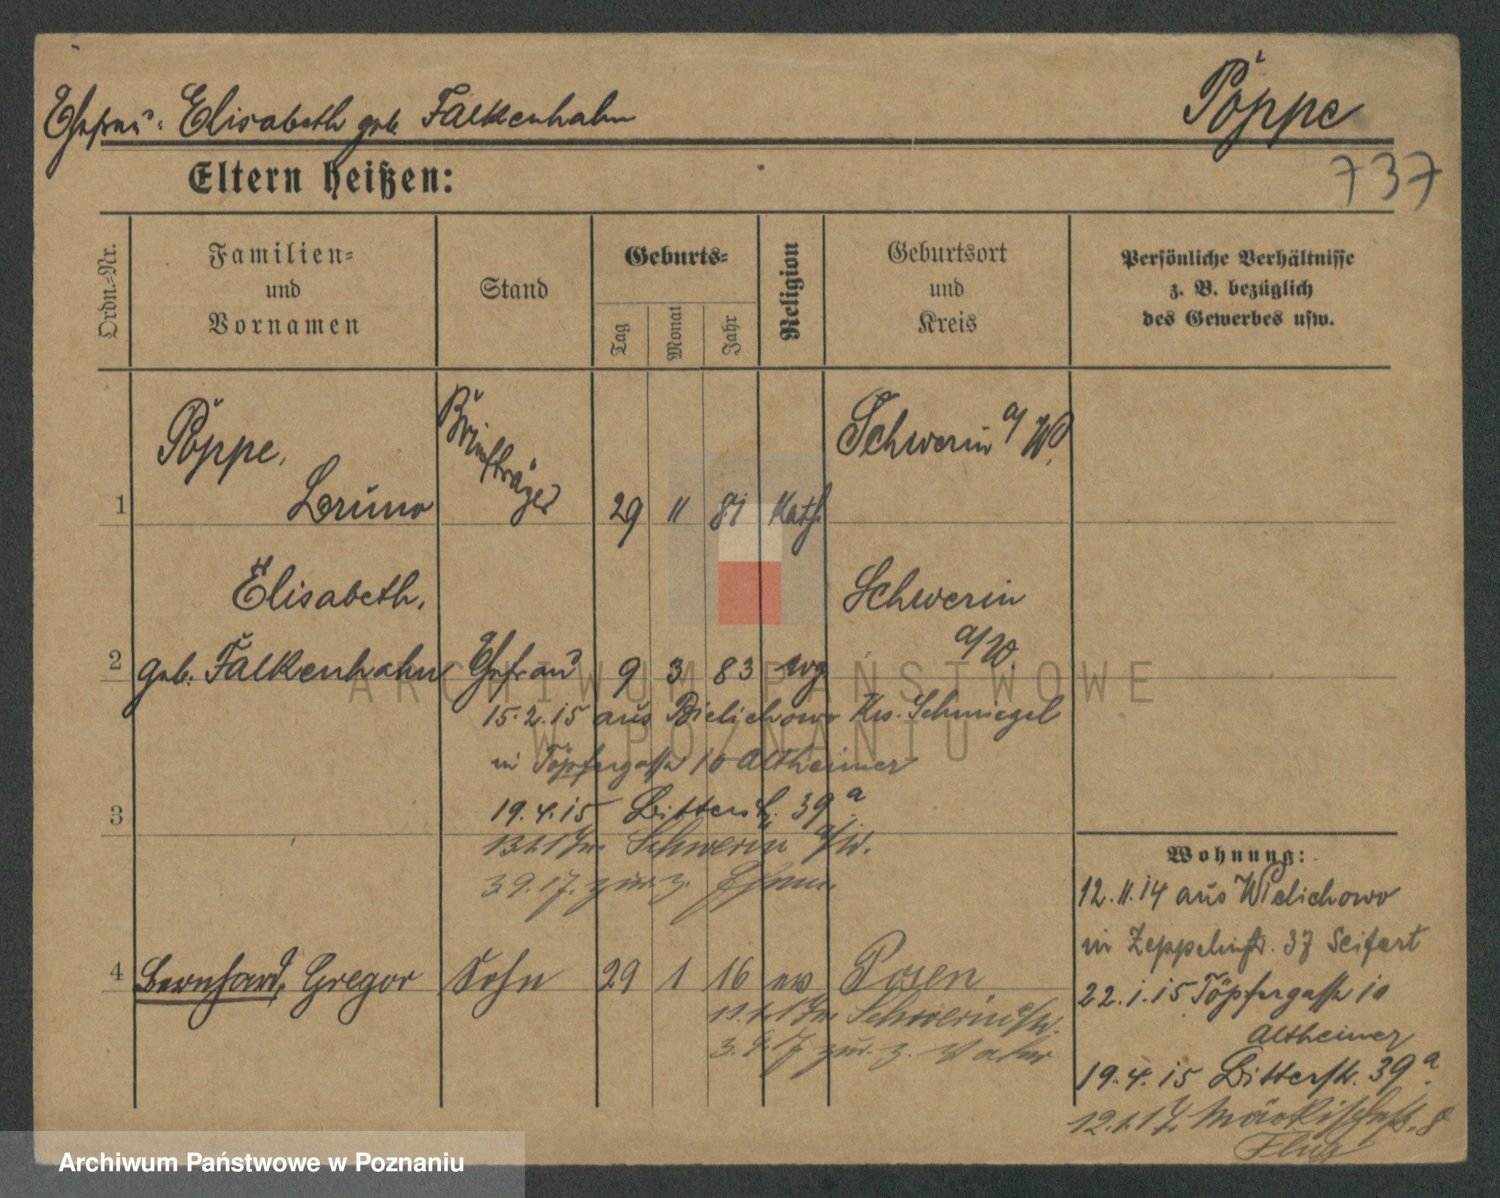 Ehefrau: Elisabeth geb. Falkenhahn
Poppe
737
Eltern heißen:
Ordn.-Nr.
Familien-
und
Vornamen
Stand
Geburts-
Tag
Monat
Jahr
Religion
Geburtsort
und
Kreis
Persönliche Verhältnisse
z. B. bezüglich
des Gewerbes usw.
1
Poppe,
Bruno
Briefträger
29 11 81 Kath.
Schwerin a/W.
2
Elisabeth,
geb. Falkenhahn
Ehefrau
9 3 83
Schwerin
a/W.
15.2.15 aus Bielichowo Krs. Schmiegel
in Töpfergasse 10 Altheimer
3
19.4.15 Bitterstr. 39a
Schwerin a/W.
3.9.17. zur. z. Ehem.
4
Bernhard, Gregor
Sohn
29 1 16 ev Posen
Schwerin a/W.
3.9.17 zur. z. Vater
Wohnung:
12.11.14 aus Wielichowo
in Zeppelinstr. 37 Seifert
22.1.15 Töpfergasse 10
Altheimer
19.4.15 Bitterstr. 39a
12.1.17. Märkischestr. 8
ARCHIWUM PAŃSTWOWE
W POZNANIU
Archiwum Państwowe w Poznaniu